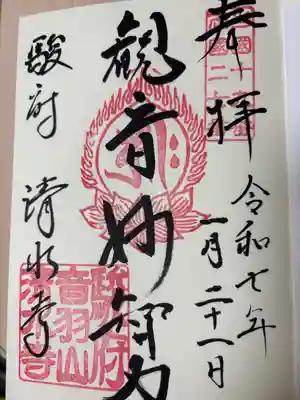 奉拝
令和七年
一月二十一日
観音妙智力
駿府
清水寺
駿府
音羽山
清水寺